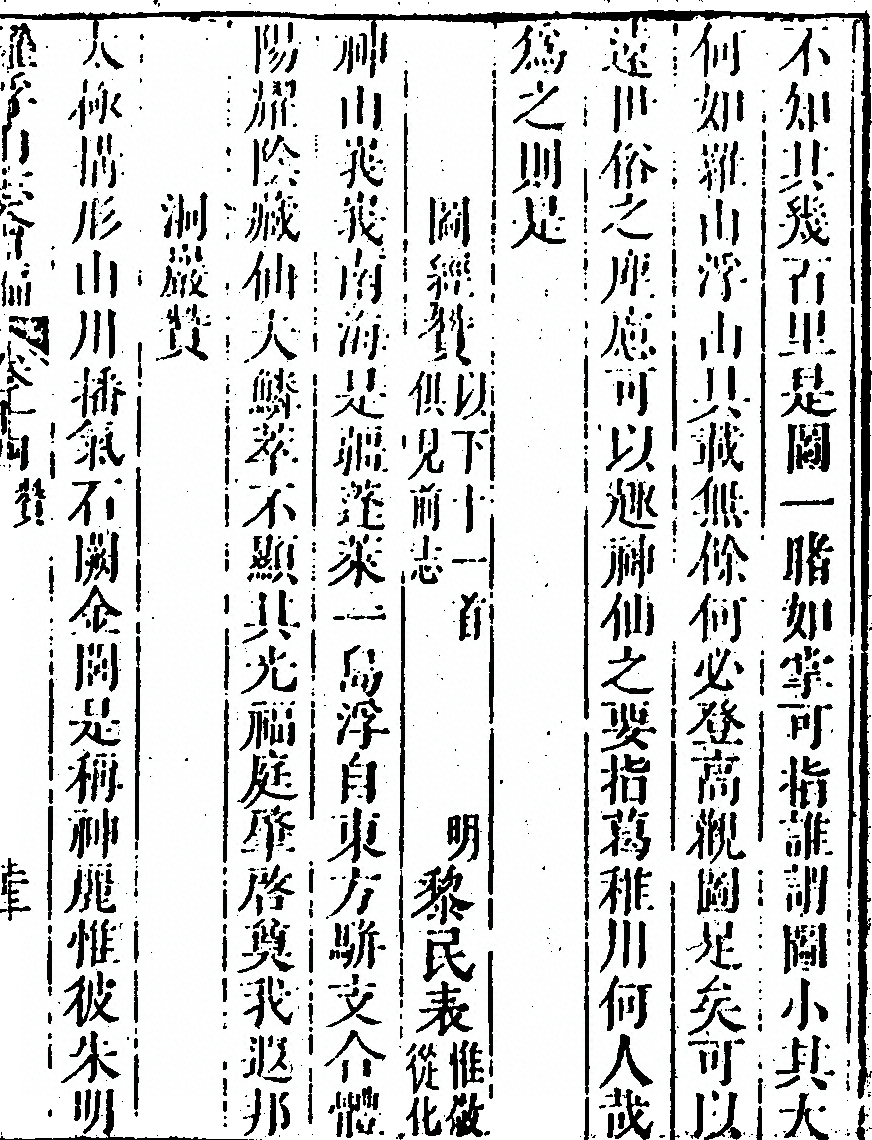 不知其幾百里是圖一睹如掌可指誰謂圖小其大
何如羅山浮山具載無餘何必登高觀圖足矣可以
遠世俗之塵慮可以趣神仙之要指葛稚川何人哉
為之則是
圖經贊 以下十一首俱見前志 明 黎民表 惟敬從化
神山峩峩南海是疆蓬萊一島浮自東方駢支合體
陽耀陰藏仙大鱗萃不顯其光福庭肇啓奠我遐邦
洞巖贊
太極搆形山川播氣石闕金闕是稱神麗惟彼朱明